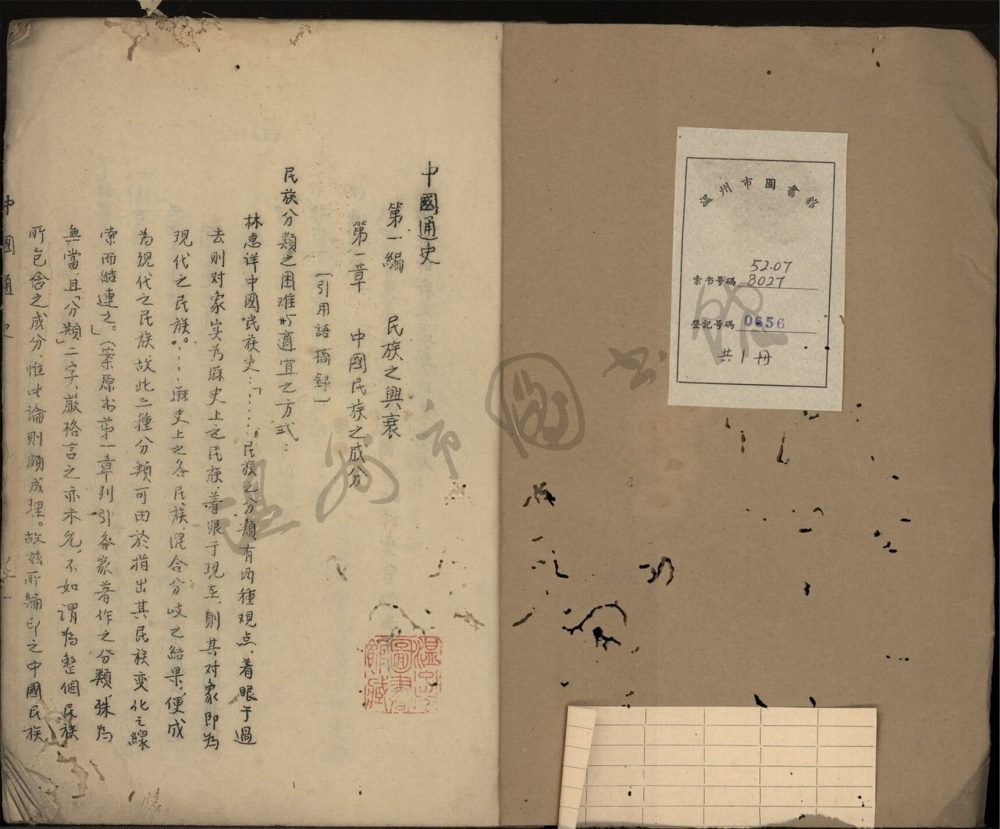 中國通史
第一編　民族之興衰
第一章　中國民族之成分
〔引用語摘錄〕
民族分類之困難与適宜之方式：
林惠详中國民族史：「……民族之分類有两種观点，着眼于過
去则对象实为厤史上之民族，着眼于现在，则其对象即为
现代之民族。……厤史上之各民族，混合分歧之结果，便成
为现代之民族，故此二種分類可由於指出其民族变化之線
索而結連之。」（案原书第一章列引各家著作之分類，殊为
無當，且「分類」二字，嚴格言之亦未允，不如谓为整個民族
所包含之成分，惟此論则頗成理。故兹所編印之中國民族
中國通史
温州市圖書館
索书号碼 5207
8027
登記号碼 0656
共1册
温州市圖书館
温州市圖書館藏